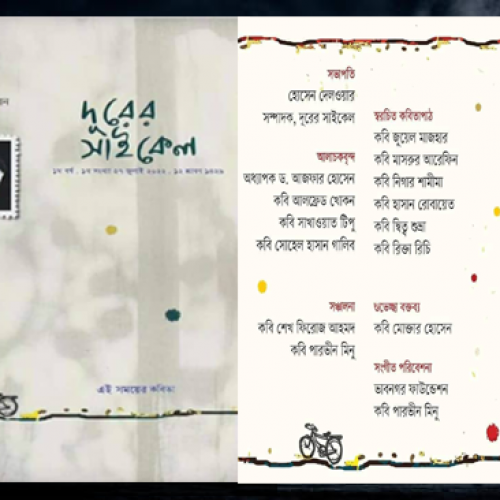 দূরের
সাইকেল
এই সময়ের কবিতা
সভাপতি
হোসেন দেলওয়ার
সম্পাদক, দূরের সাইকেল
আলোচকবৃন্দ
অধ্যাপক ড. আজফার হোসেন
কবি আলফ্রেড খোকন
কবি সাখাওয়াত টিপু
কবি সোহেল হাসান গালিব
সঞ্চালনা
কবি শেখ ফিরোজ আহমদ
কবি পারভীন মিনু
স্বরচিত কবিতাপাঠ
কবি জুয়েল মাজহার
কবি মাসরুর আরেফিন
কবি নিগার শামীমা
কবি হাসান রোবায়েত
কবি দ্বিত্ব শুভ্রা
কবি রিক্তা রিচি
শুভেচ্ছা বক্তব্য
কবি মোক্তার হোসেন
সংগীত পরিবেশনা
ভাবনগর ফাউন্ডেশন
কবি পারভীন মিনু